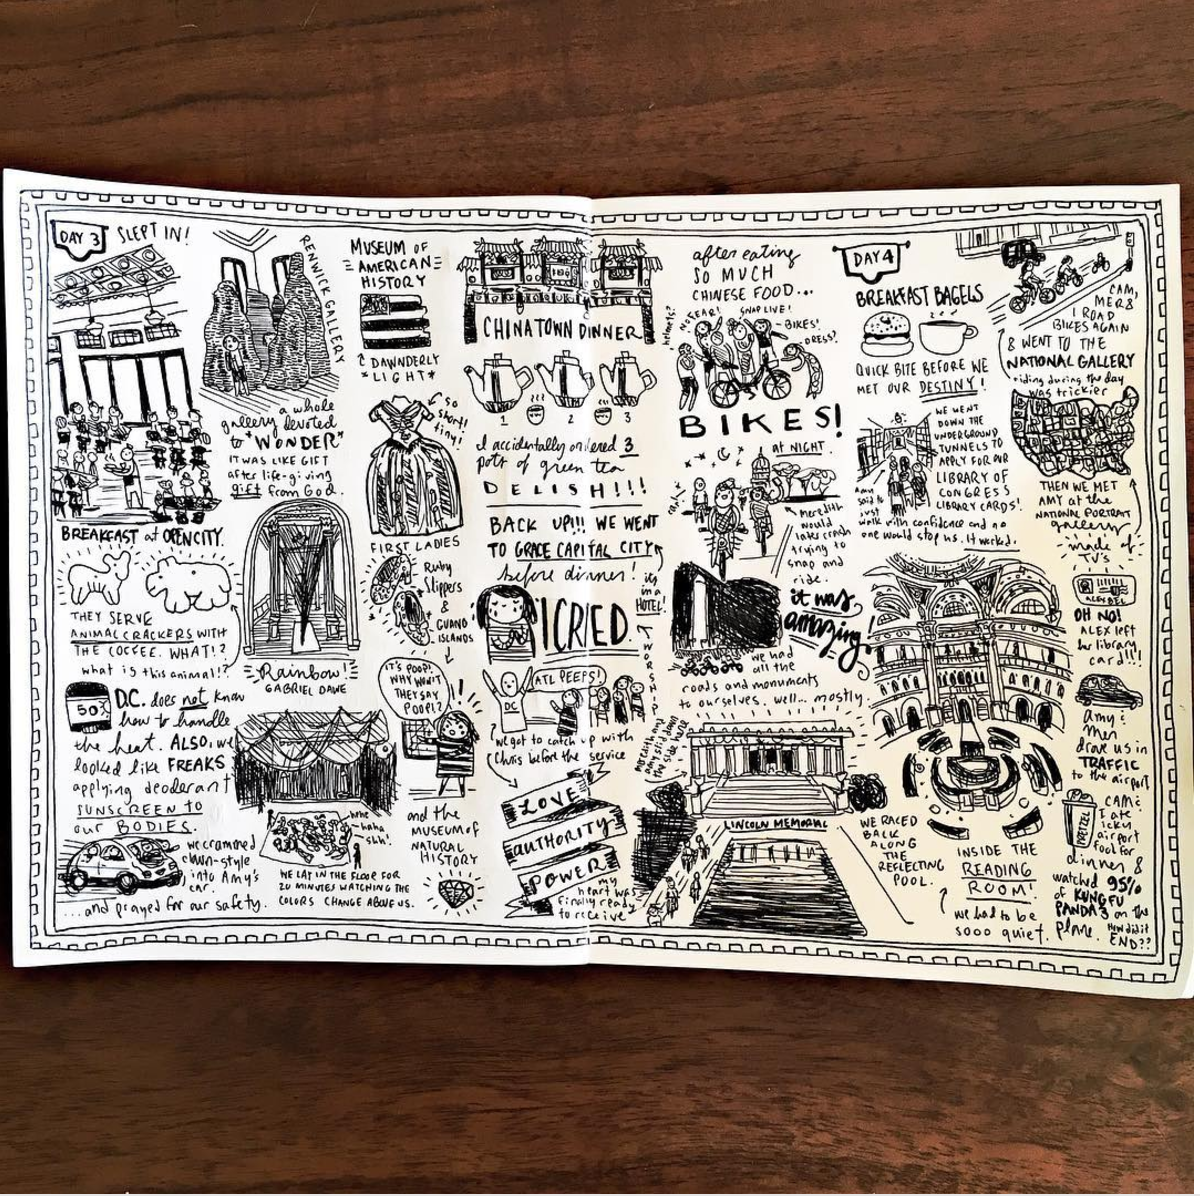 DAY 3
SLEPT IN!
BREAKFAST at OPEN CITY.
THEY SERVE
ANIMAL CRACKERS WITH
THE COFFEE. WHAT!?
what is this animal!?
50
D.C. does not know
how to handle
the heat. ALSO, we
looked like FREAKS
applying deodorant
SUNSCREEN TO
our BODIES.
we crammed
clown-style
into Amy's
car.
...and prayed for our safety.
RENWICK GALLERY
a whole
gallery devoted
to "WONDER"
IT WAS LIKE GIFT
after life-giving
gift from God.
Rainbow!
GABRIEL DAWE
hehe
haha
shh!
WE LAY IN THE FLOOR FOR
20 MINUTES WATCHING THE
COLORS CHANGE ABOVE US.
MUSEUM OF
AMERICAN
HISTORY
DAWNDERLY
LIGHT
so
short!
tiny!
FIRST LADIES
Ruby
Slippers
&
GUANO
ISLANDS
IT'S POOP!
WHY WON'T
THEY SAY
POOP!?
and the
MUSEUM of
NATURAL
HISTORY
CHINATOWN DINNER
1 2 3
I accidentally ordered 3
pots of green tea
DELISH!!!
BACK UP!!! WE WENT
TO GRACE CAPITAL CITY
before dinner!
it's
in a
HOTEL!
I CRIED.
WORSHIP
ATL PEEPS!
DC
we got to catch up with
Chris before the service
LOVE
AUTHORITY
POWER
my
heart was
finally ready
to receive
after eating
SO MUCH
CHINESE FOOD...
helmets?
NO FEAR!
SNAP LIVE!
BIKES!
DRESS?
BIKES!
AT NIGHT.
Meredith
would
later crash
trying to
snap and
ride.
it was
amazing!
we had
all the
roads and monuments
to ourselves. well... mostly.
LINCOLN MEMORIAL
WE RACED
BACK
ALONG
THE
REFLECTING
POOL.
DAY 4
BREAKFAST BAGELS
QUICK BITE BEFORE WE
MET OUR DESTINY!
WE WENT
DOWN THE
UNDERGROUND
TUNNELS TO
APPLY FOR OUR
LIBRARY OF
CONGRESS
LIBRARY CARDS!
Amy
said to
just
walk with confidence and no
one would stop us. It worked.
INSIDE THE
READING
ROOM!
we had to be
sooo quiet.
CAM,
MER &
I ROAD
BIKES AGAIN
& WENT TO THE
NATIONAL GALLERY
riding during the day
was trickier
THEN WE MET
AMY at the
NATIONAL PORTRAIT
gallery
made of
TV's
OH NO!
ALEX left
her library
card!!!
Amy &
Mer
drove us in
TRAFFIC
to the airport
PRETZEL
CAM &
I ate
icky
airport
food for
dinner &
watched 95%
of KUNG FU
PANDA 3 on the
plane.
How did it
END??